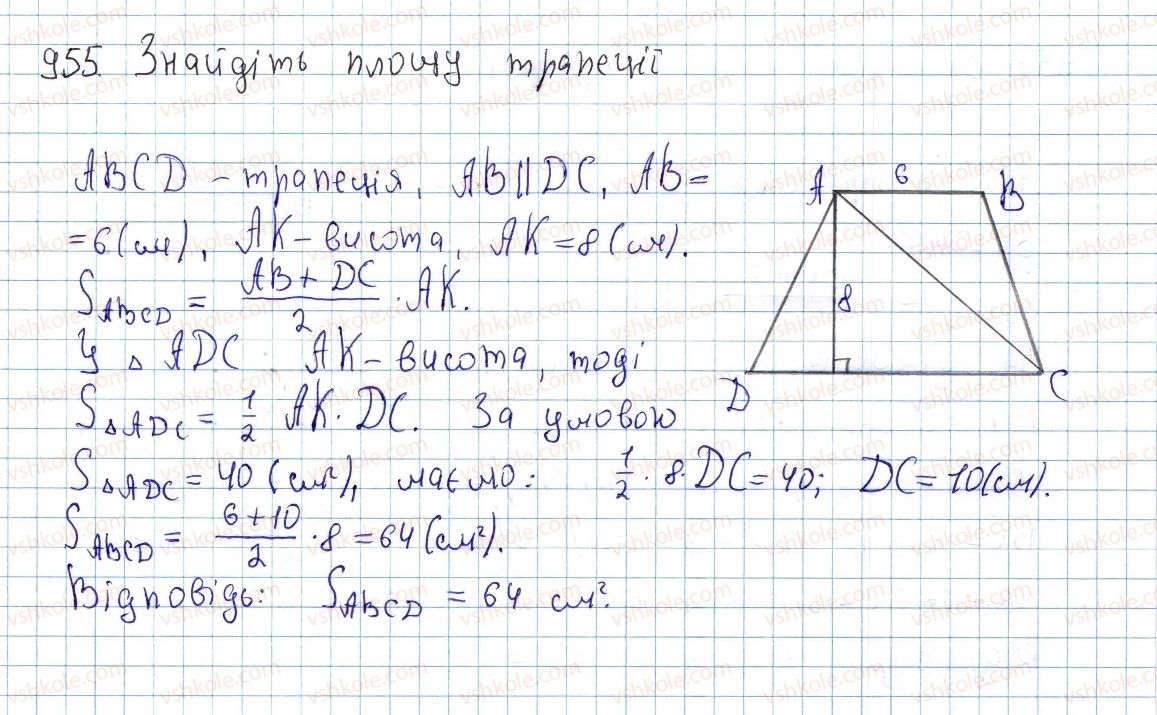 955. Знайдіть площу трапеції
ABCD – трапеція, AB || DC, AB =
= 6 (см), AK – висота, AK = 8 (см).
S_ABCD = (AB + DC)/2 · AK.
У △ ADC AK – висота, тоді
S_△ADC = 1/2 AK · DC. За умовою
S_△ADC = 40 (см²), маємо: 1/2 · 8 · DC = 40; DC = 10 (см).
S_ABCD = (6 + 10)/2 · 8 = 64 (см²).
Відповідь: S_ABCD = 64 см².
A 6 B
8
D C
vshkole.com